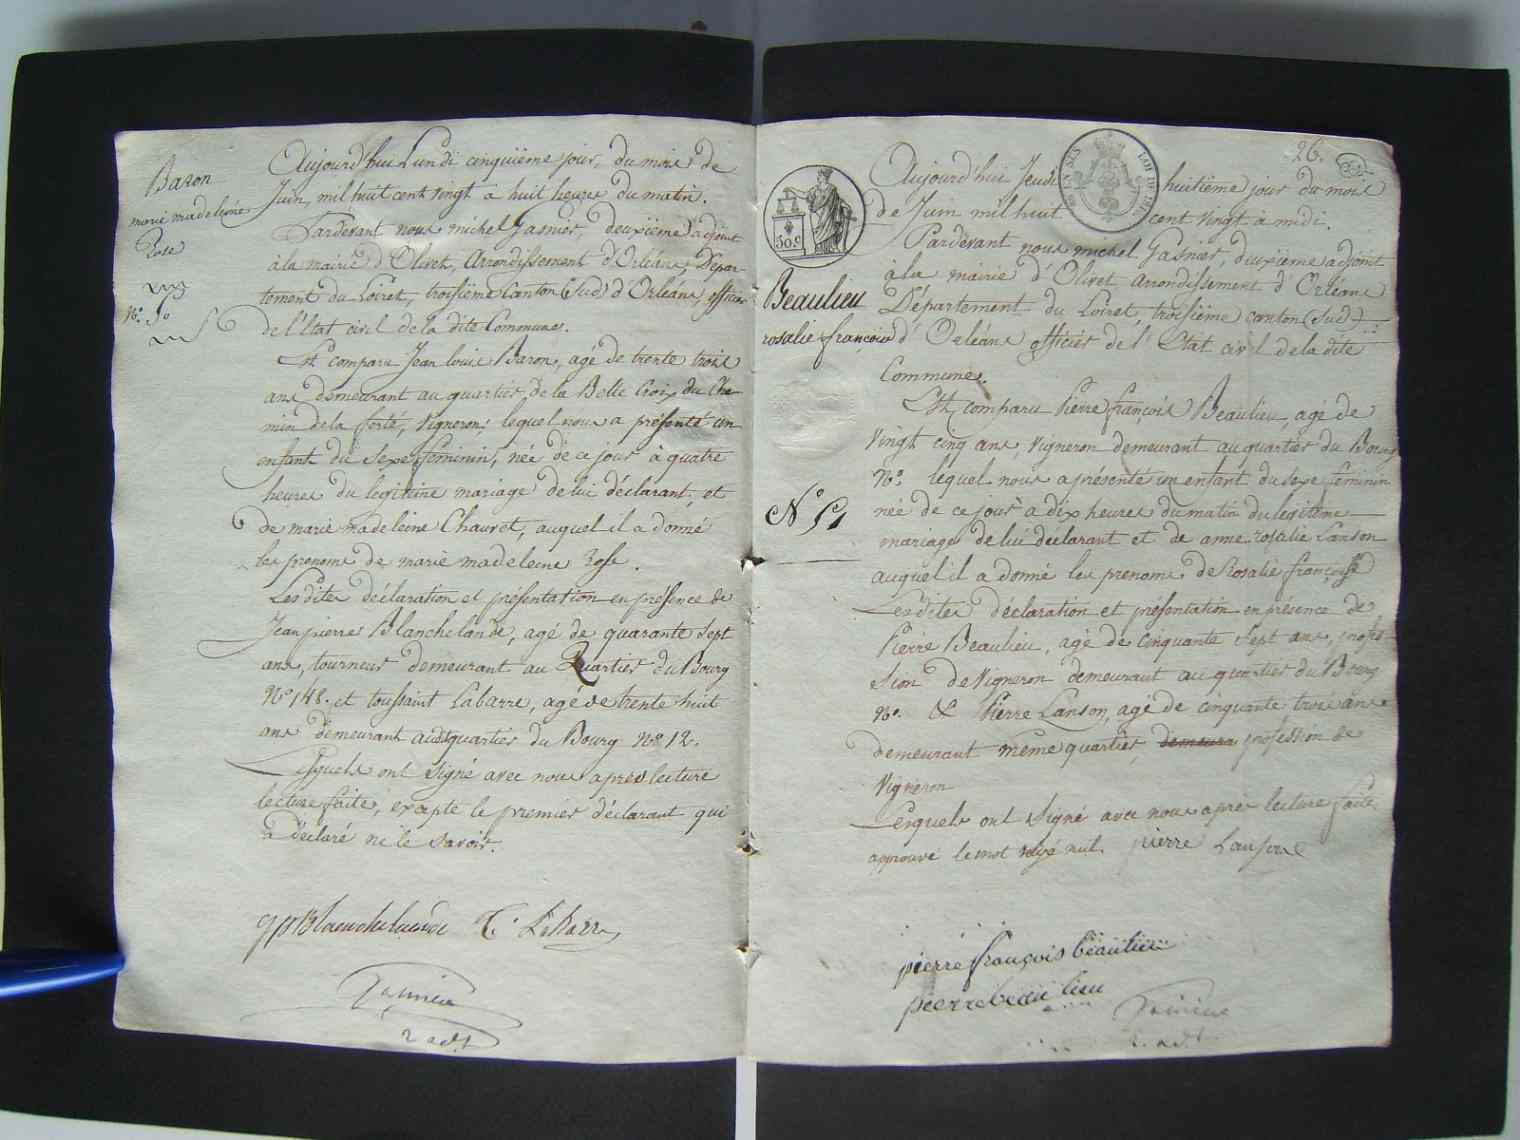 Baron
marie madeleine
Rose
N.° 50
Aujourd'hui Lundi cinquième jour, du mois de
Juin, mil huit cent vingt à huit heures du matin.
Pardevant nous michel Gasnier, deuxième adjoint
à la mairie d'Olivet, Arrondissement d'Orléans, Dépar-
tement du Loiret, troisième Canton (Sud) d'Orléans, officier
de l'Etat civil de la dite Commune.
Est comparu Jean louis Baron, agé de trente trois
ans demeurant au quartier de la Belle Croix du Che-
min de la ferté, Vigneron; lequel nous a présenté un
enfant du Sexe féminin, née de ce jour à quatre
heures du legitime mariage de lui déclarant, et
de marie madeleine Chauvet, auquel il a donné
les prenoms de marie madeleine rose.
Les dites déclaration et présentation en présence de
Jean pierre Blanchelande, agé de quarante Sept
ans, tourneur demeurant au Quartier du Bourg
N° 148. et toussaint Labarre, agé de trente huit
ans demeurant au quartier du Bourg N° 12.
Lesquels ont signé avec nous après lecture
lecture faite, excepté le premier déclarant qui
a déclaré ne le savoir.
jp Blanchelande T. LaBarre
Gasnier
2 adj.t
26.
50.c
Beaulieu
rosalie françoise
N° 51
Aujourd'hui Jeudi huitième jour du mois
de Juin mil huit cent vingt à midi.
Pardevant nous michel Gasnier, deuxième adjoint
à la mairie d'Olivet arrondissement d'Orléans
Département du Loiret, troisième canton (Sud)
d'Orléans officier de l'Etat civil de la dite
Commune.
Est comparu Pierre françois Beaulieu, agé de
vingt cinq ans, vigneron demeurant au quartier du Bourg
N°. lequel nous a présenté un enfant du sexe féminin
née de ce jour à dix heures du matin du legitime
mariage de lui déclarant et de anne rosalie Lanson
auquel il a donné les prenoms de Rosalie françoise
Les dites déclaration et présentation en présence de
Pierre Beaulieu, agé de cinquante Sept ans, profes-
sion de Vigneron demeurant au quartier du Bourg
N°. & Pierre Lanson, agé de cinquante trois ans
demeurant même quartier, demeura profession de
Vigneron
Lesquels ont signé avec nous après lecture faite
approuvé le mot rayé nul. pierre Lanson
pierre françois beaulieu
pierre beau lieu
Gasnier
2. adj.t